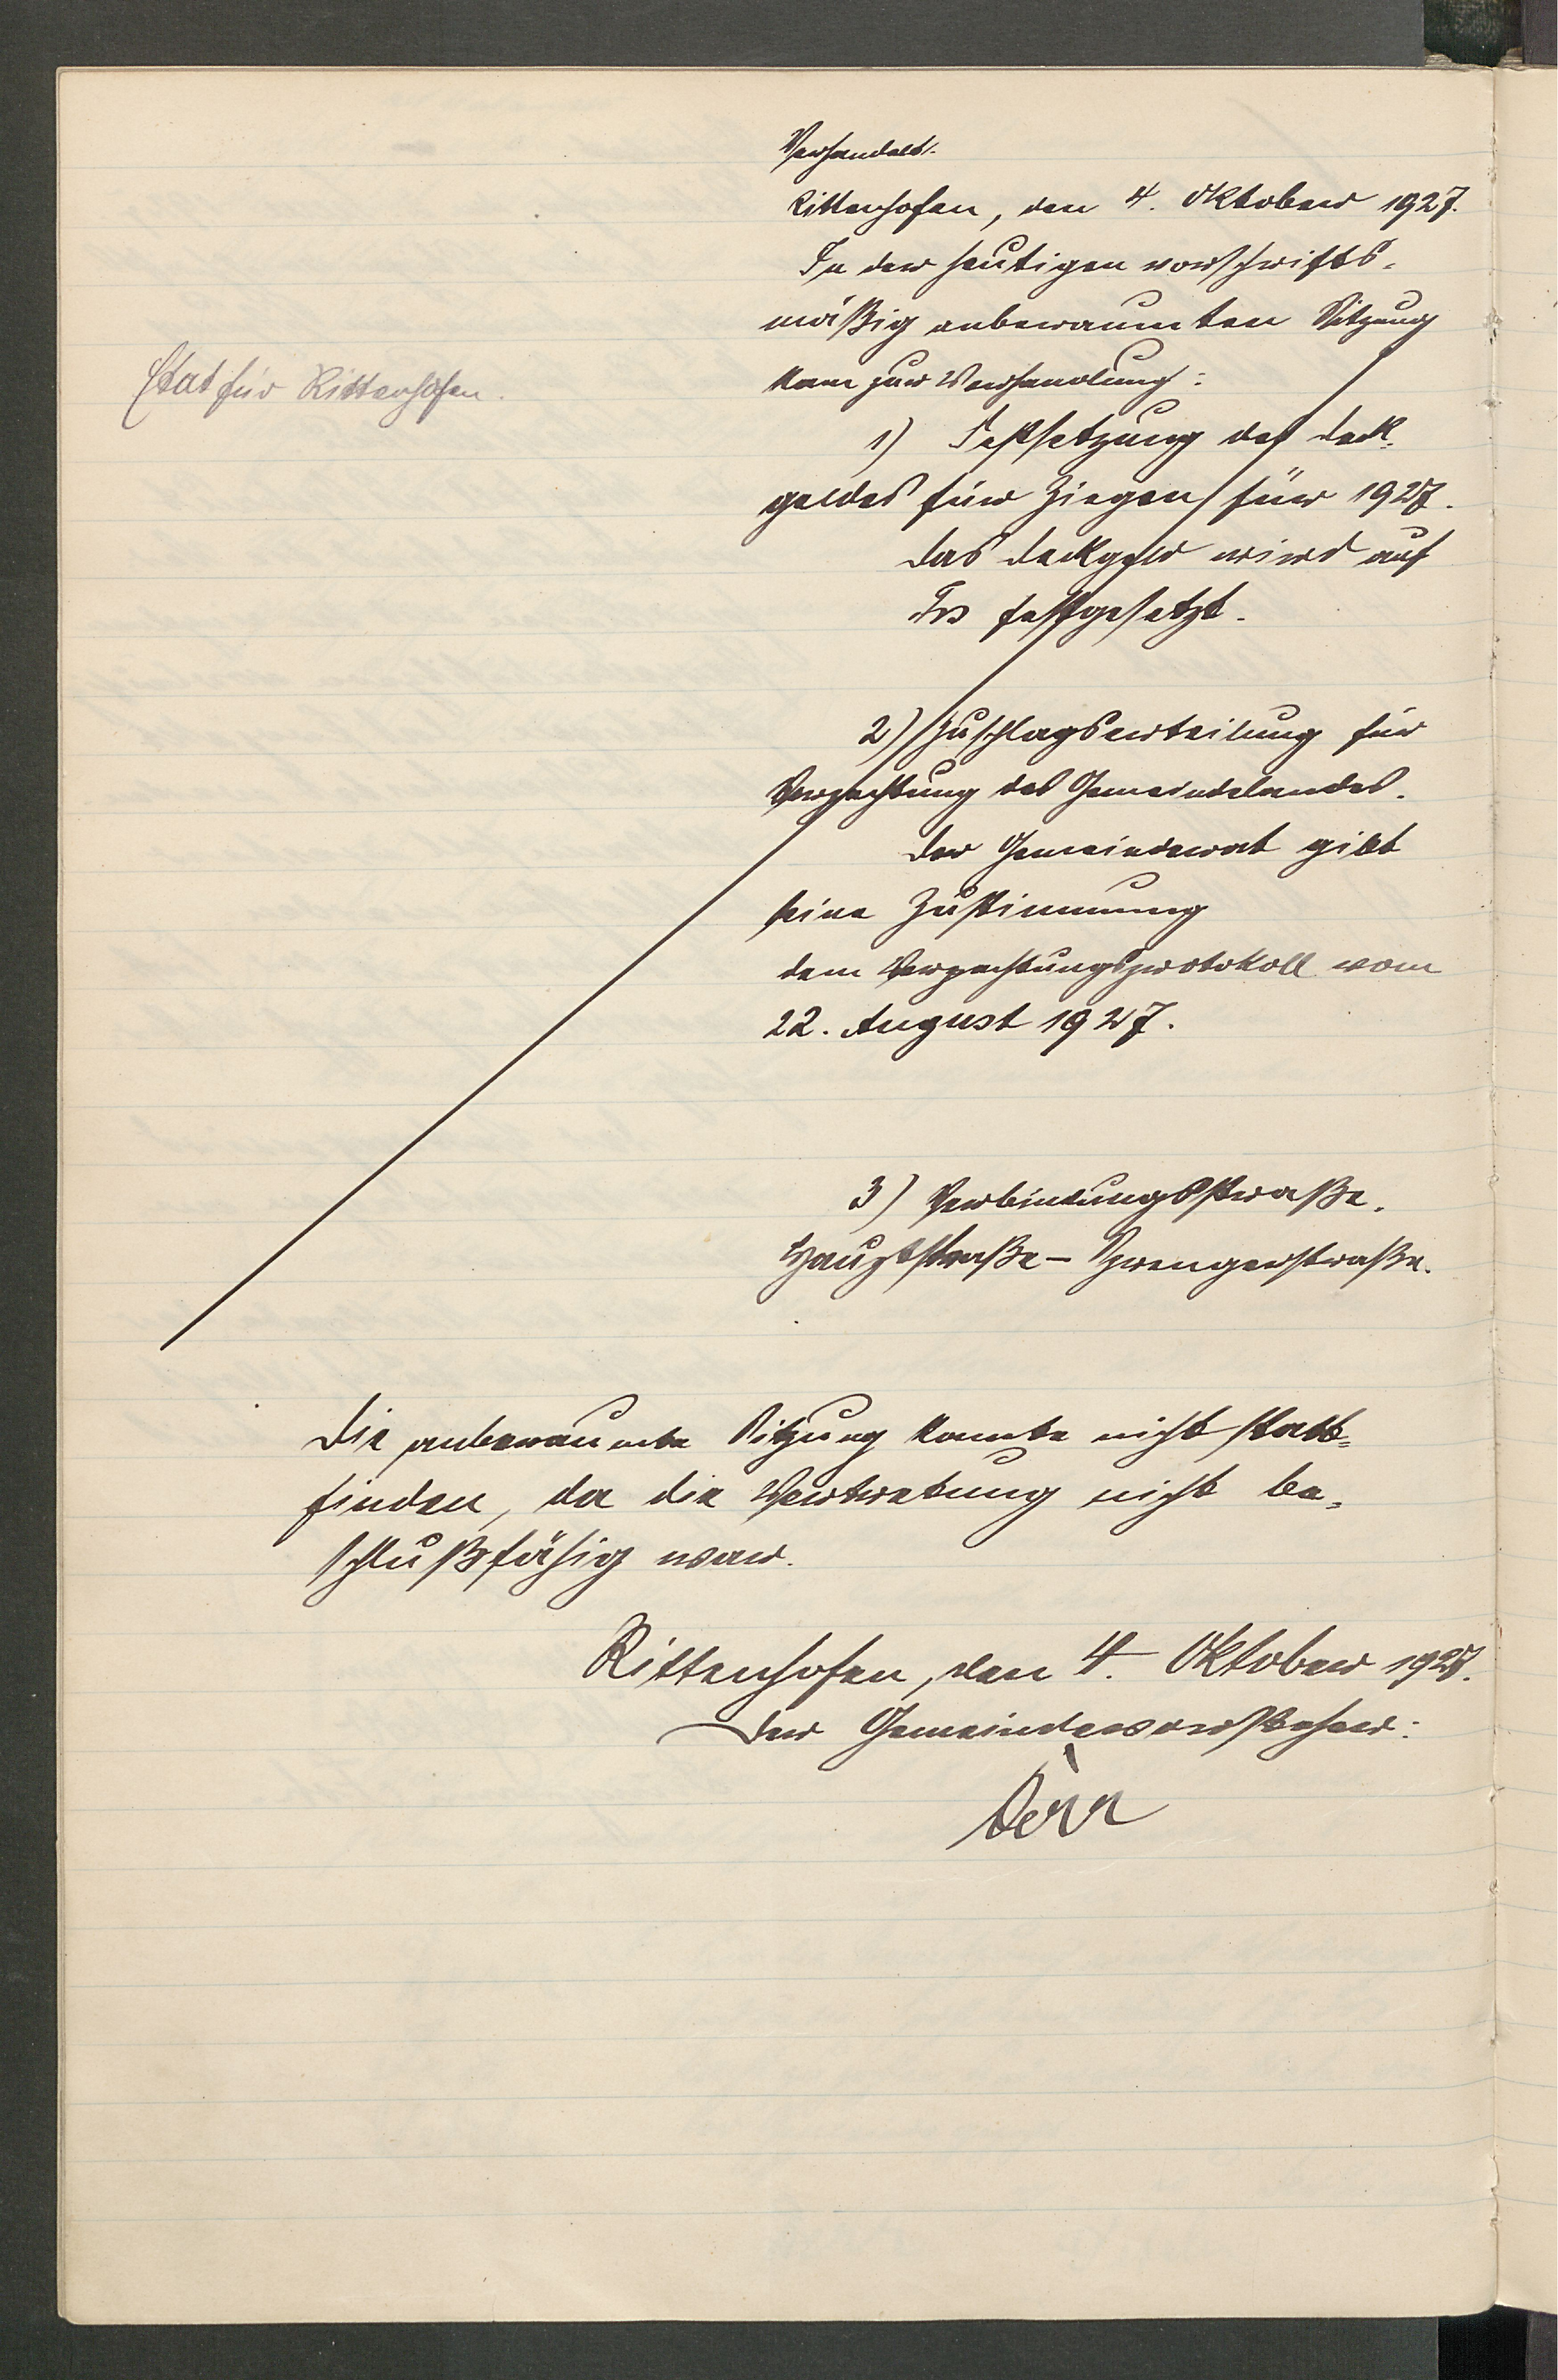 Verhandelt.
Rittenhofen, den 4. Oktober 1927.
In der heutigen vorschrifts-
mäßig anberaumten Sitzung
kam zur Verhandlung:
Etat für Rittenhofen.
1) Festsetzung des Deck-
geldes für Ziegen für 1927.
Das Deckgeld wird auf
Frs festgesetzt.
2) Zuschlagserteilung für
Verpachtung des Gemeindelandes.
Der Gemeinderat gibt
seine Zustimmung
dem Verpachtungsprotokoll vom
22. August 1927.
3) Verbindungsstraße.
Hauptstraße - Sprengerstraße.
Die anberaumte Sitzung konnte nicht statt=
finden, da die Vertretung nicht be-
schlußfähig war.
Rittenhofen, den 4. Oktober 1927.
Der Gemeindevorsteher:
Dörr